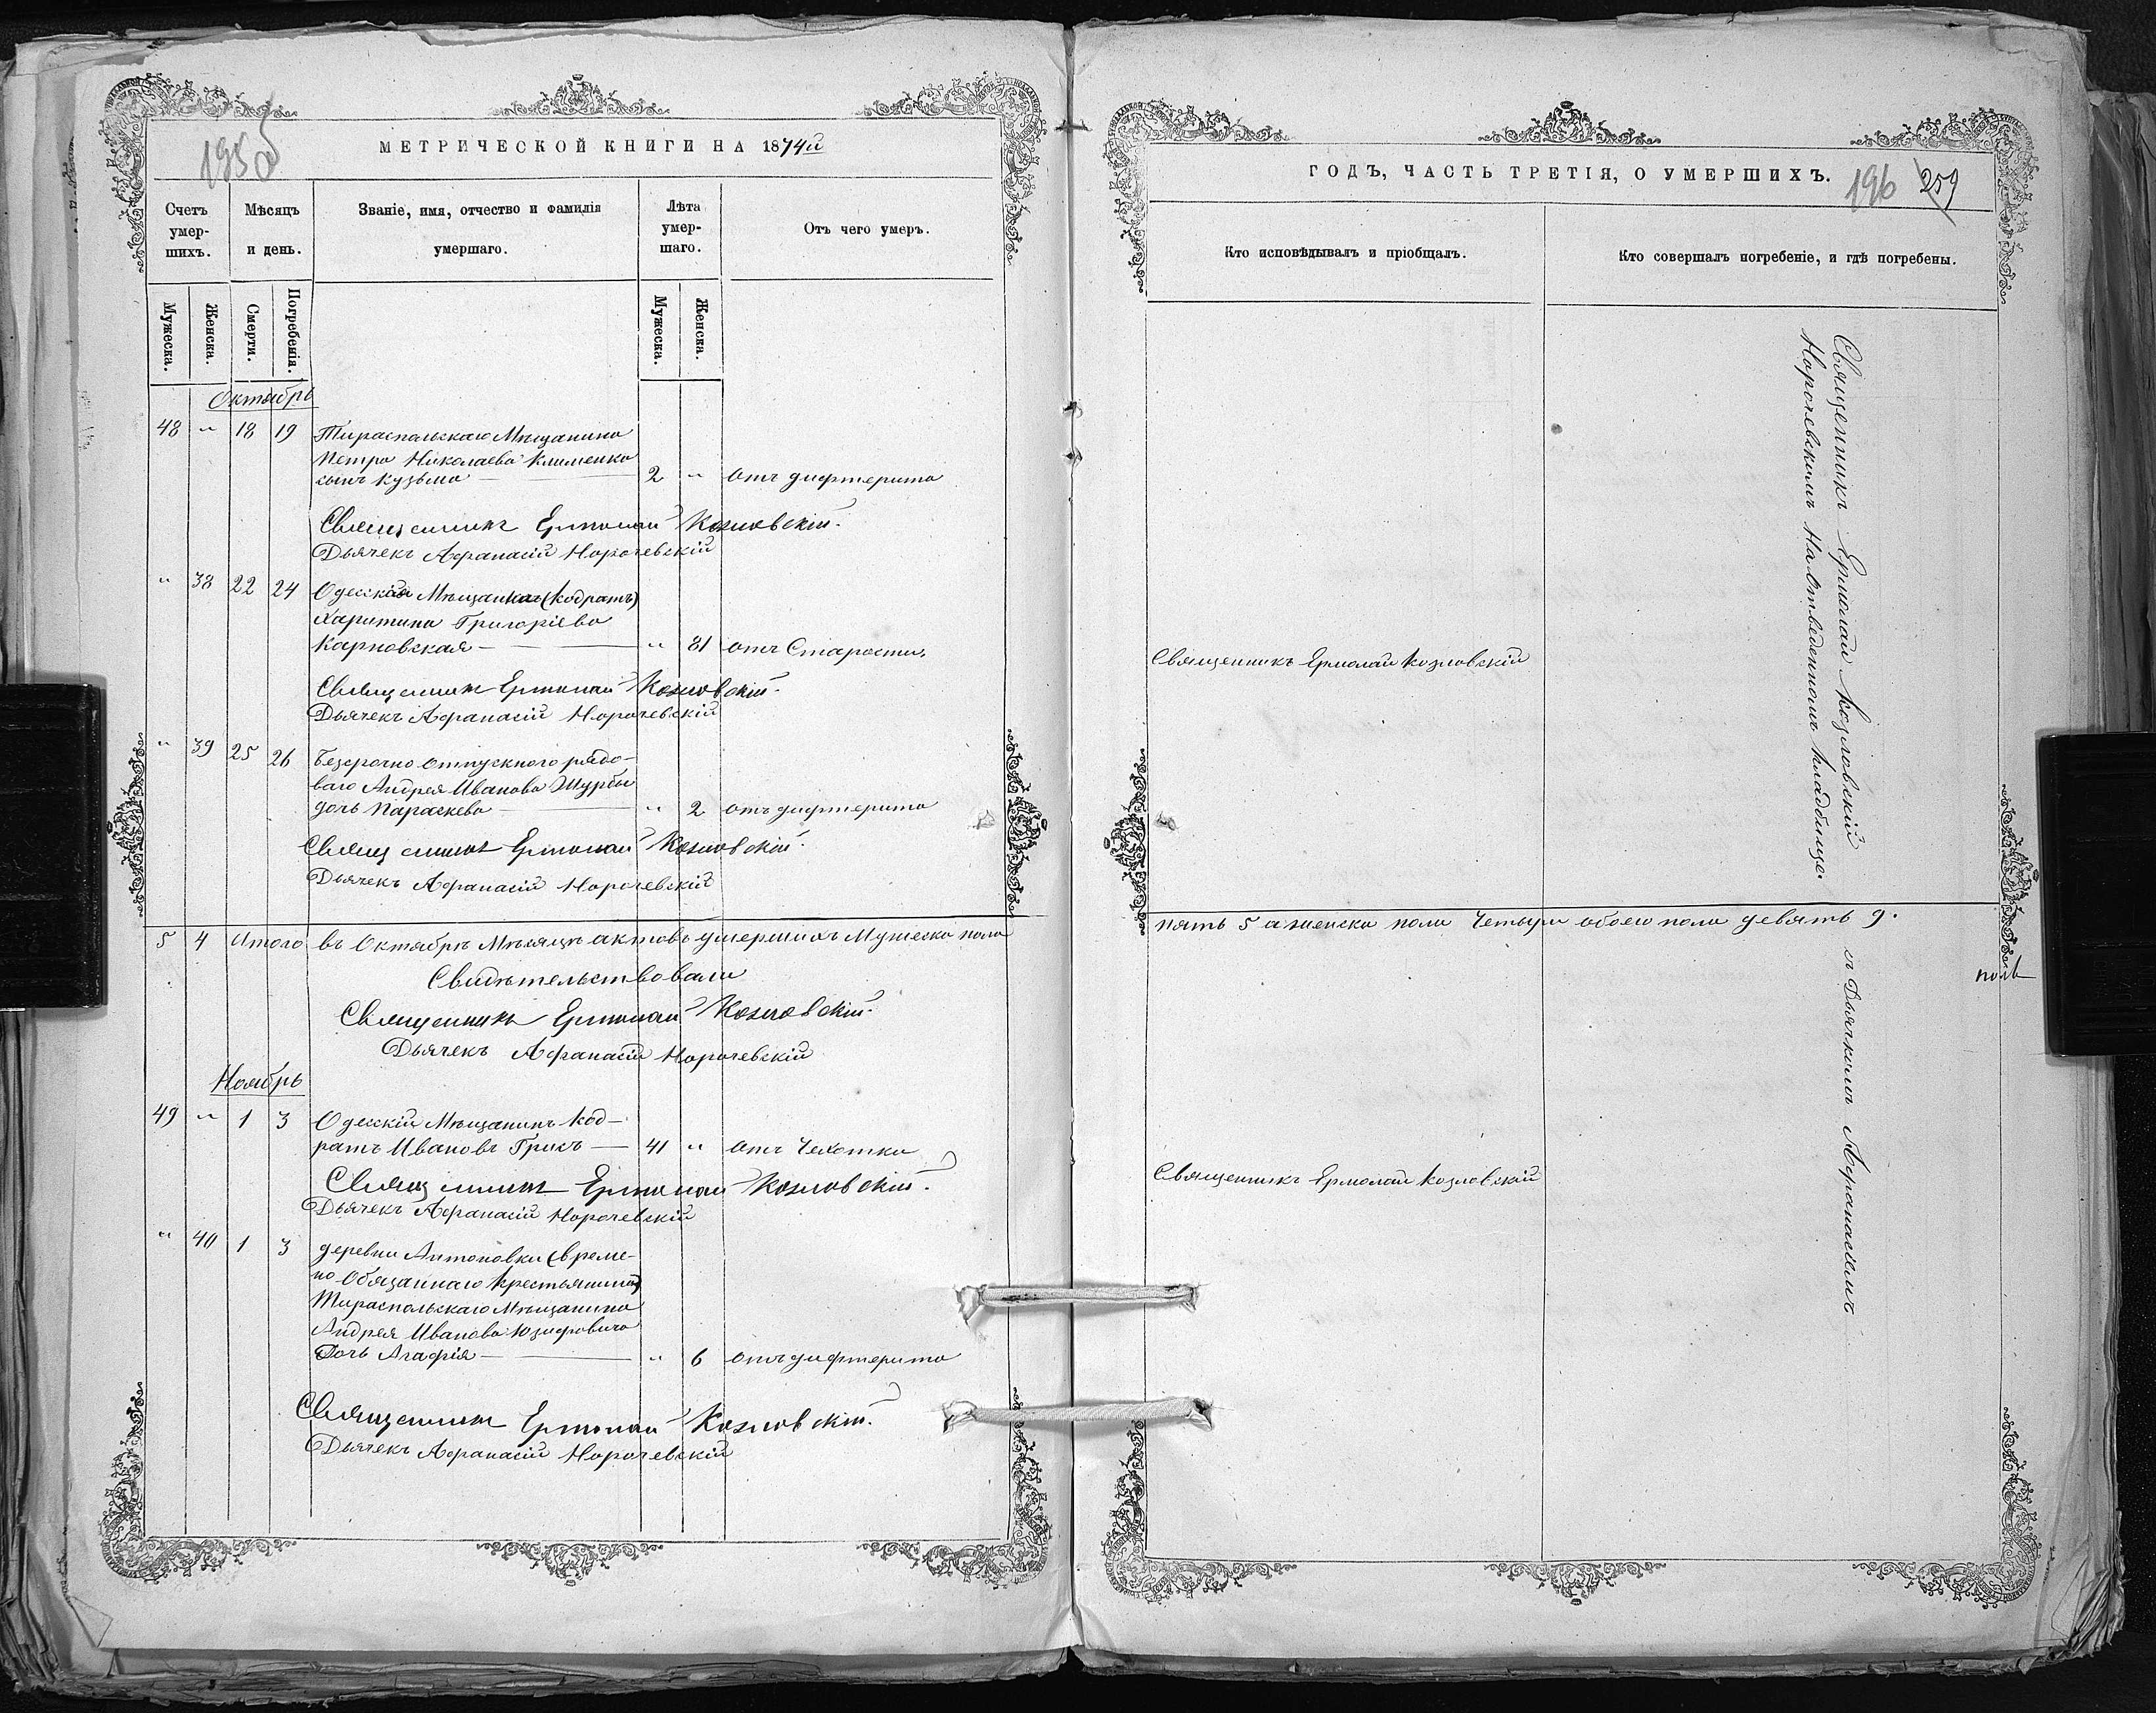 195 об
МЕТРИЧЕСКОЙ КНИГИ НА 1874й
Счетъ умер-шихъ.
Мѣсяцъ и день.
Званіе, имя, отчество и фамилія умершаго.
Лѣта умер-шаго.
Отъ чего умеръ.
Мужеска. Женска. Смерти. Погребенія. Мужеска. Женска.
Октябрь
48 " 18 19 Тираспольскаго Мѣщанина
Петра Николаева Клименка
сынъ Кузьма — 2 " отъ дифтерита
Священникъ Ермолай Козловскій.
Дьячекъ Афанасій Норочевскій
" 38 22 24 Одесская Мѣщанка (Кодратъ)
Харитина Григоріева
Карповская — " 81 отъ Старости.
Священникъ Ермолай Козловскій.
Дьячекъ Афанасій Норочевскій
" 39 25 26 Безсрочно отпускного рядо-
ваго Андрея Иванова Шурбы
дочь Параскева — " 2 отъ дифтерита
Священникъ Ермолай Козловскій.
Дьячекъ Афанасій Норочевскій
5 4 Итого въ Октябрѣ Мѣсяцѣ актовъ умершихъ Мужеска пола
Свидѣтельствовали
Священникъ Ермолай Козловскій.
Дьячекъ Афанасій Норочевскій
Ноябрь
49 " 1 3 Одесскій Мѣщанинъ Код-
ратъ Ивановъ Грисъ — 41 " отъ Чехотки
Священникъ Ермолай Козловскій.
Дьячекъ Афанасій Норочевскій
" 40 1 3 деревни Антоновки (време-
но Обязаннаго крестьянина)
Тираспольскаго Мѣщанина
Андрея Иванова Юзифовича
Дочь Агафія — " 6 отъ дифтерита
Священникъ Ермолай Козловскій.
Дьячекъ Афанасій Норочевскій
ГОДЪ, ЧАСТЬ ТРЕТІЯ, О УМЕРШИХЪ.
196 259
Кто исповѣдывалъ и пріобщалъ.
Кто совершалъ погребеніе, и гдѣ погребены.
Священникъ Ермолай Козловскій
пять 5 а женска пола Четыри обоего пола девять 9.
Священникъ Ермолай Козловскій
Священникъ Ермолай Козловскій съ Дьячкомъ Афанасіемъ
Норочевскимъ на Отведенномъ Кладбище.